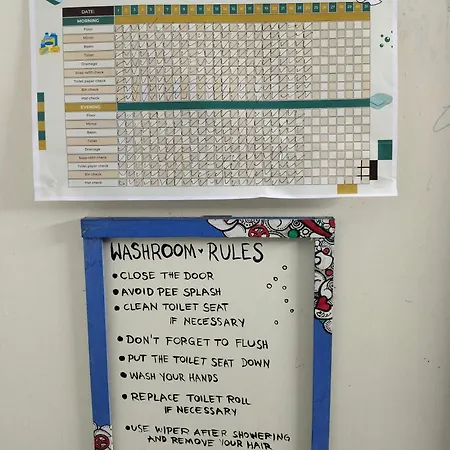 DATE:
MORNING
Floor
Mirror
Basin
Toilet
Drainage
Soap refill check
Toilet paper check
Bin check
Mat check
EVENING
Floor
Mirror
Basin
Toilet
Drainage
Soap refill check
Toilet paper check
Bin check
Mat check
WASHROOM RULES
• CLOSE THE DOOR
• AVOID PEE SPLASH
• CLEAN TOILET SEAT
IF NECESSARY
• DON'T FORGET TO FLUSH
• PUT THE TOILET SEAT DOWN
• WASH YOUR HANDS
• REPLACE TOILET ROLL
IF NECESSARY
• USE WIPER AFTER SHOWERING
AND REMOVE YOUR HAIR